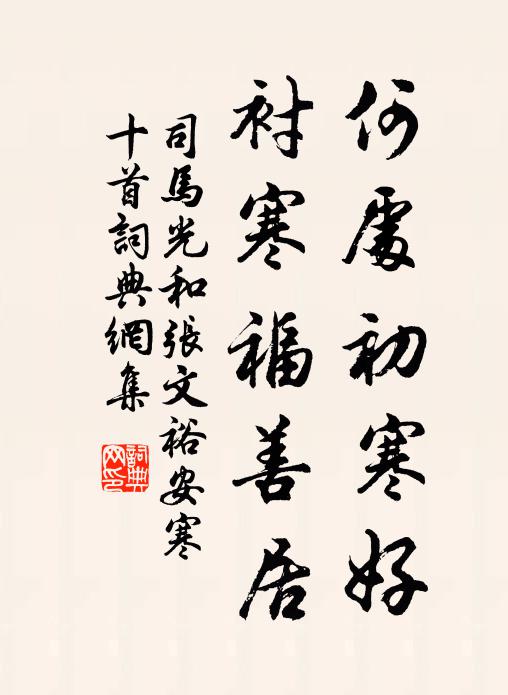 何處初寒好
初寒福善居
司馬光和張文裕安寒
十首詞典網集
詞典
网印